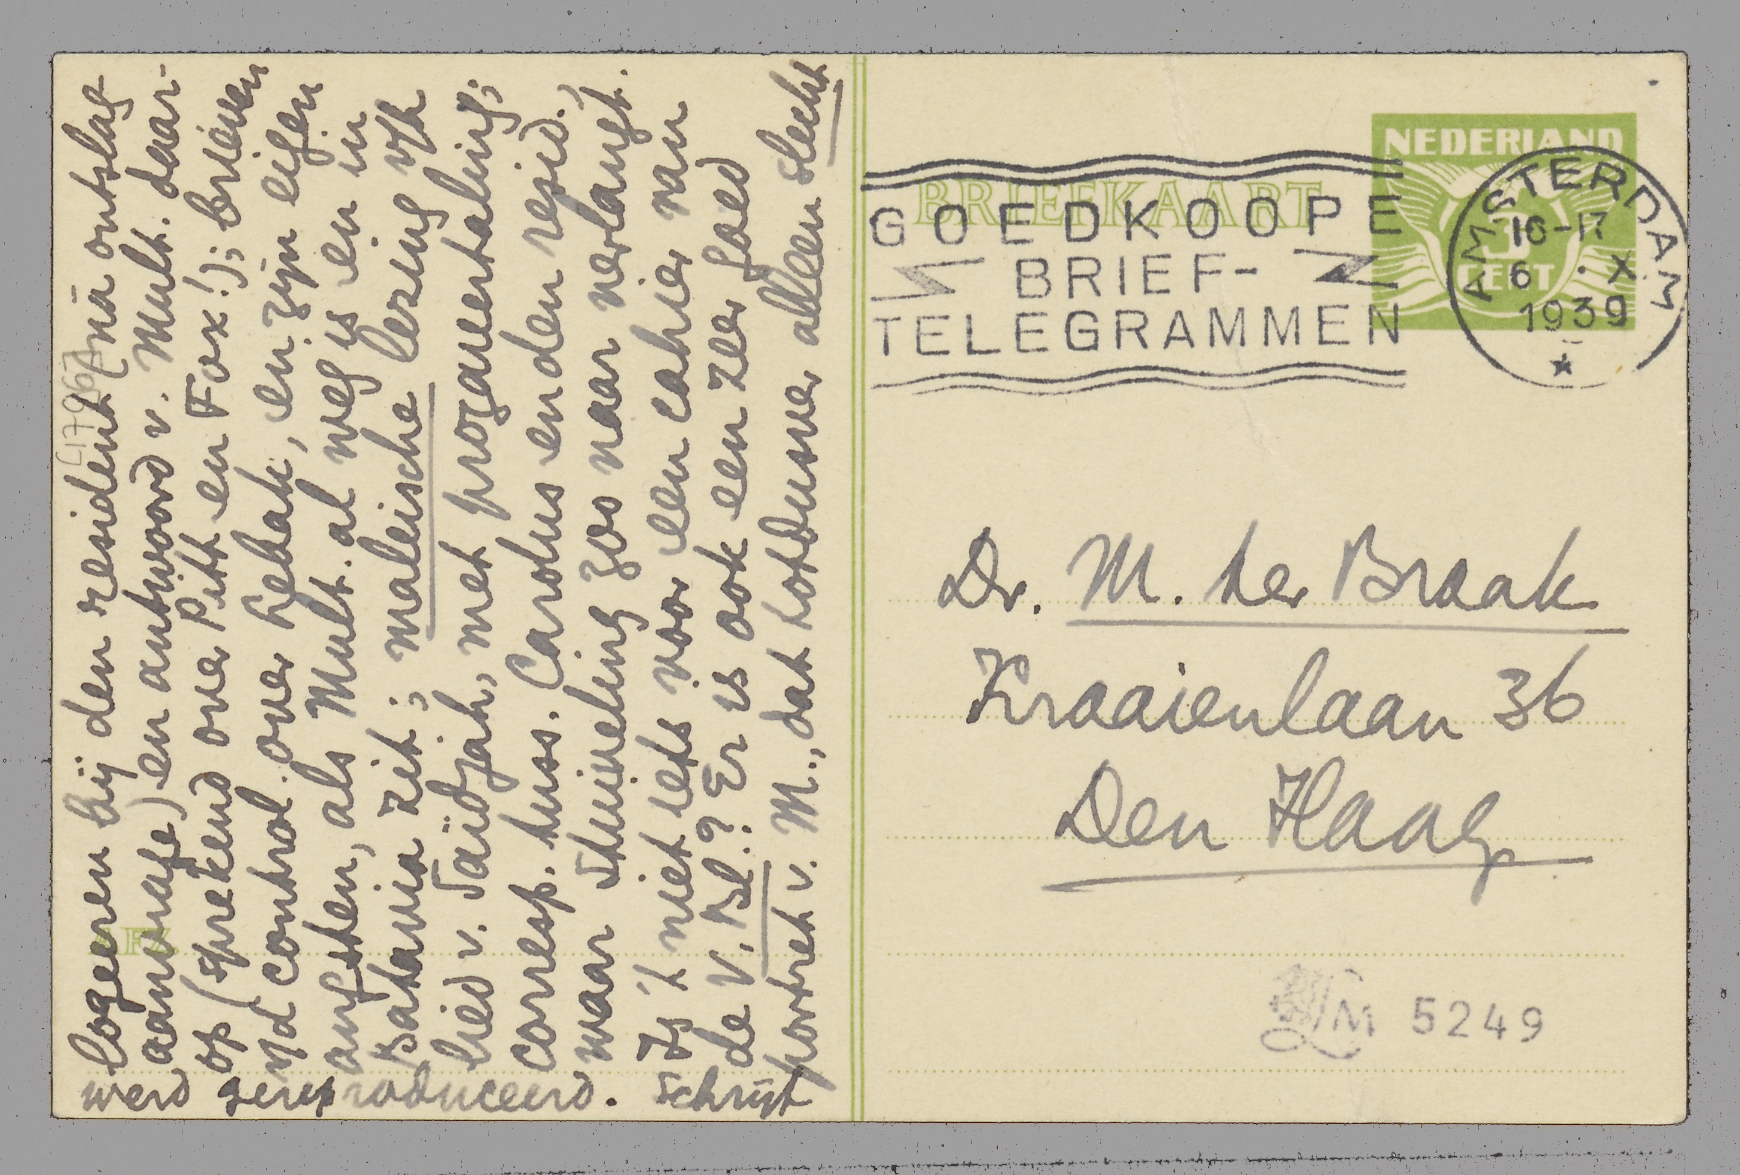 logeeren bij den resident (nà ontslag-
aanvrage) en antwoord v. Mult. daar-
op (sprekend over Pitt en Fox!); brieven
v/d control. over Lebak, en zijn eigen
angsten, als Mult. al weg is en in
Batavia zit; maleische lezing v/h
lied v. Saïdjah, met prozavertaling;
corresp. tuss. Carolus en den resid.,
waar Stuiveling zoo naar verlangt.
Is 't niet iets voor een cahier van
de V. Bl.? Er is ook een zeer goed
portret v. M., dat totdusver alleen slecht
werd gereproduceerd. Schrijf
[17967]
NEDERLAND
3
CENT
BRIEFKAART
GOEDKOOPE
BRIEF-
TELEGRAMMEN
AMSTERDAM
16-17
6 . X
1939
Dr. M. ter Braak
Kraaienlaan 36
Den Haag
LM 5249